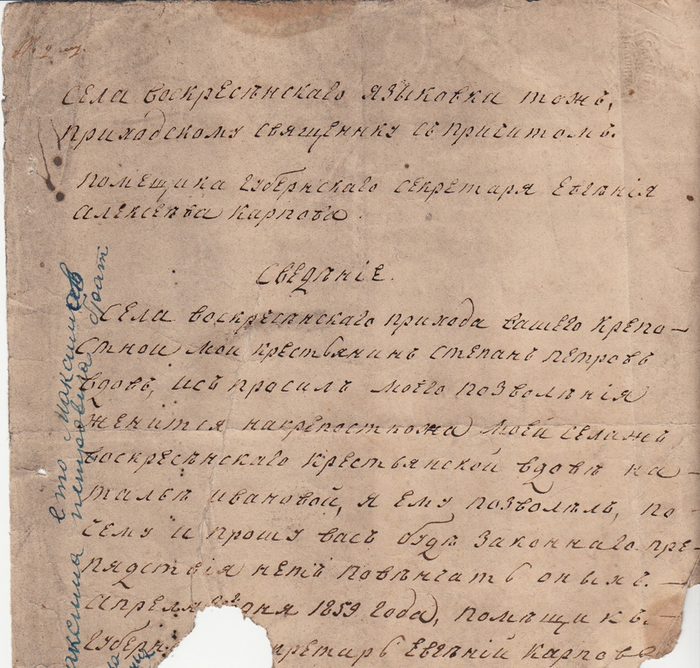 Села воскресѣнскаго языковка тожъ,
приходскому священнику съ причитомъ.
помещика губернскаго секретаря Евгѣнія
алексеѣва карпова.
Сведѣніе.
Села воскресѣнскаго прихода вашего крепо-
стной мой крестьянинъ степанъ петровъ
вдовъ, испросилъ моего позволѣнія
женится накрепостножа моей селажъ
воскресѣнскаго крестьянской вдовѣ на-
тальѣ ивановой, я ему позволѣлъ, по-
чему и прошу васъ будѣ законнаго пре-
пядствія нетъ повѣнчать оныхъ.-
апреля дня 1859 года, помѣщикъ.-
Губерн претарь Евгѣній карпов
это максимов
максима петровича брат